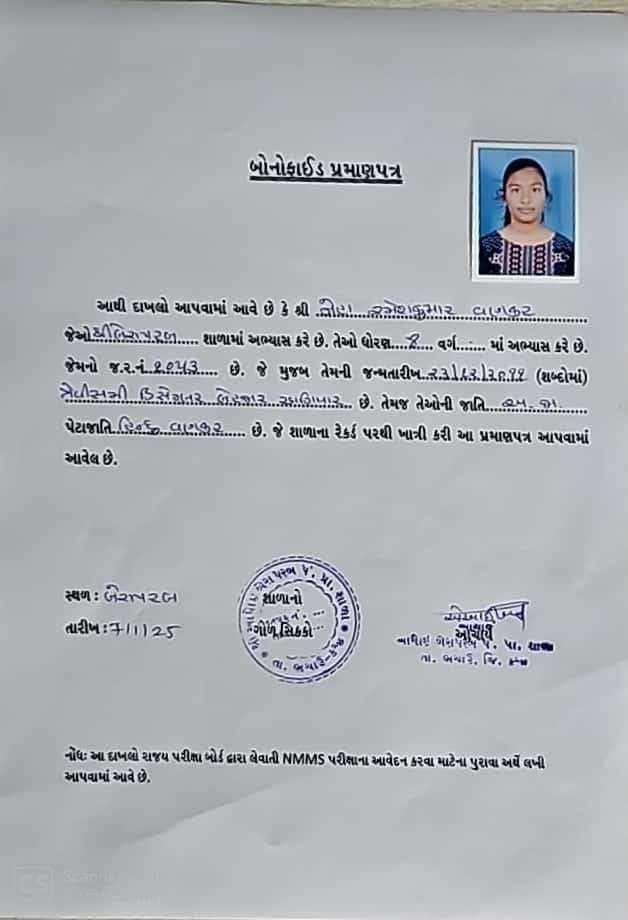 બોનોફાઈડ પ્રમાણપત્ર
આથી દાખલો આપવામાં આવે છે કે શ્રી રમેશકુમાર વાણકર
જેઓ શ્રી શાળામાં અભ્યાસ કરે છે. તેઓ ધોરણ 8 વર્ગ માં અભ્યાસ કરે છે.
જેમનો જ.ર.નં ૨૦૫૩ છે. જે મુજબ તેમની જન્મતારીખ ૨૩/૧૨/૨૦૧૧ (શબ્દોમાં)
ત્રેવીસમી ડિસેમ્બર બેહજાર અગિયાર છે. તેમજ તેઓની જાતિ અ. જા.
પેટાજાતિ હિન્દુ વાણકર છે. જે શાળાના રેકર્ડ પરથી ખાત્રી કરી આ પ્રમાણપત્ર આપવામાં
આવેલ છે.
સ્થળ :
તારીખ : 7/1/25
શાળાનો
ગોળ સિક્કો
આચાર્ય
પે. પ્રા. શાળા
તા. ભચાઉ, જિ. કચ્છ
નોંધઃ આ દાખલો રાજય પરીક્ષા બોર્ડ દ્વારા લેવાતી NMMS પરીક્ષાના આવેદન કરવા માટેના પુરાવા અર્થે લખી
આપવામાં આવે છે.
CS